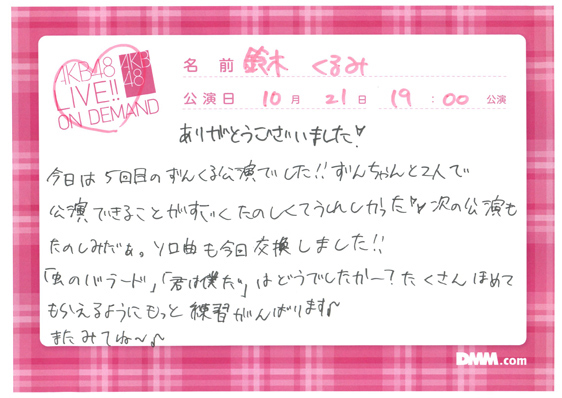 AKB48
LIVE!!
ON DEMAND
AKB
48
名前 鈴木 くるみ
公演日 10月 21日 19:00 公演
ありがとうございました♡
今日は5回目のずんくる公演でした!!ずんちゃんと2人で
公演できることがすごくたのしくてうれしかった♡♡次の公演も
たのしみだぁ。ソロ曲も今日交換しました!!
「虫のバラード」「君は僕だ」はどうでしたかー?たくさんほめて
もらえるようにもっと練習がんばります♪
またみてね〜♪
DMM.com